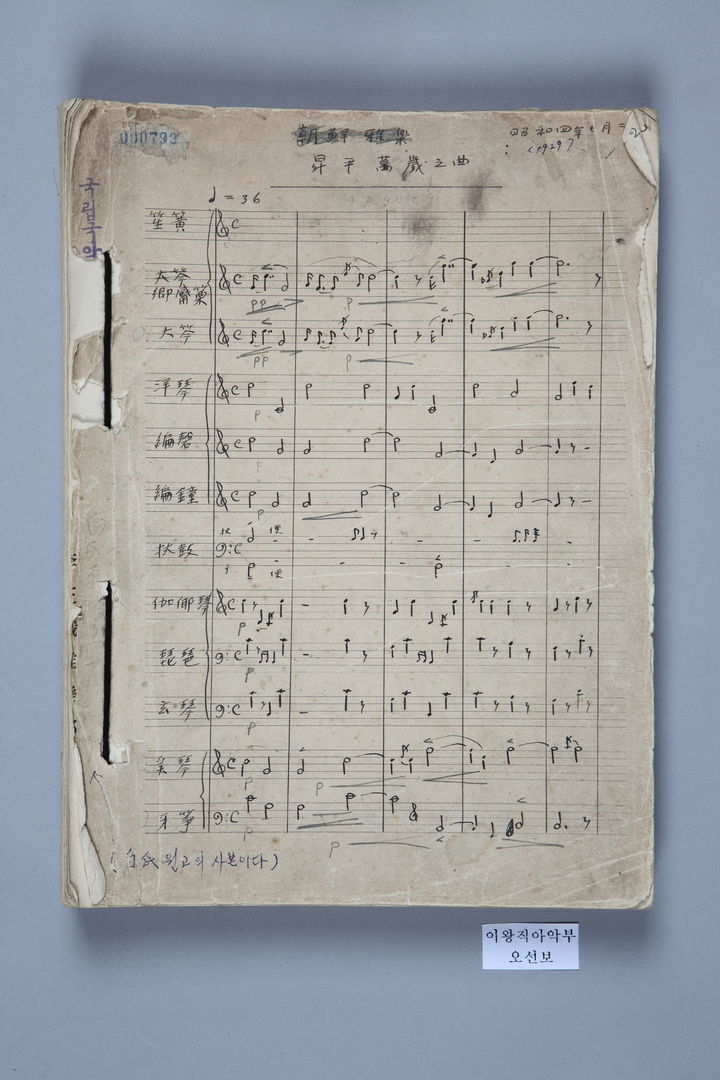 000733
朝鮮雅樂
昇平萬歲之曲
昭和四年七月
(1929?)
국립국악
♩=36
笙簧
大笒
鄕觱篥
pp
p
大笒
pp
p
洋琴
p
編磬
p
編鐘
p
杖鼓
伽倻琴
p
琵琶
p
玄琴
p
奚琴
p
p
牙箏
p
p
원고의 사본이다)
이왕직아악부
오선보